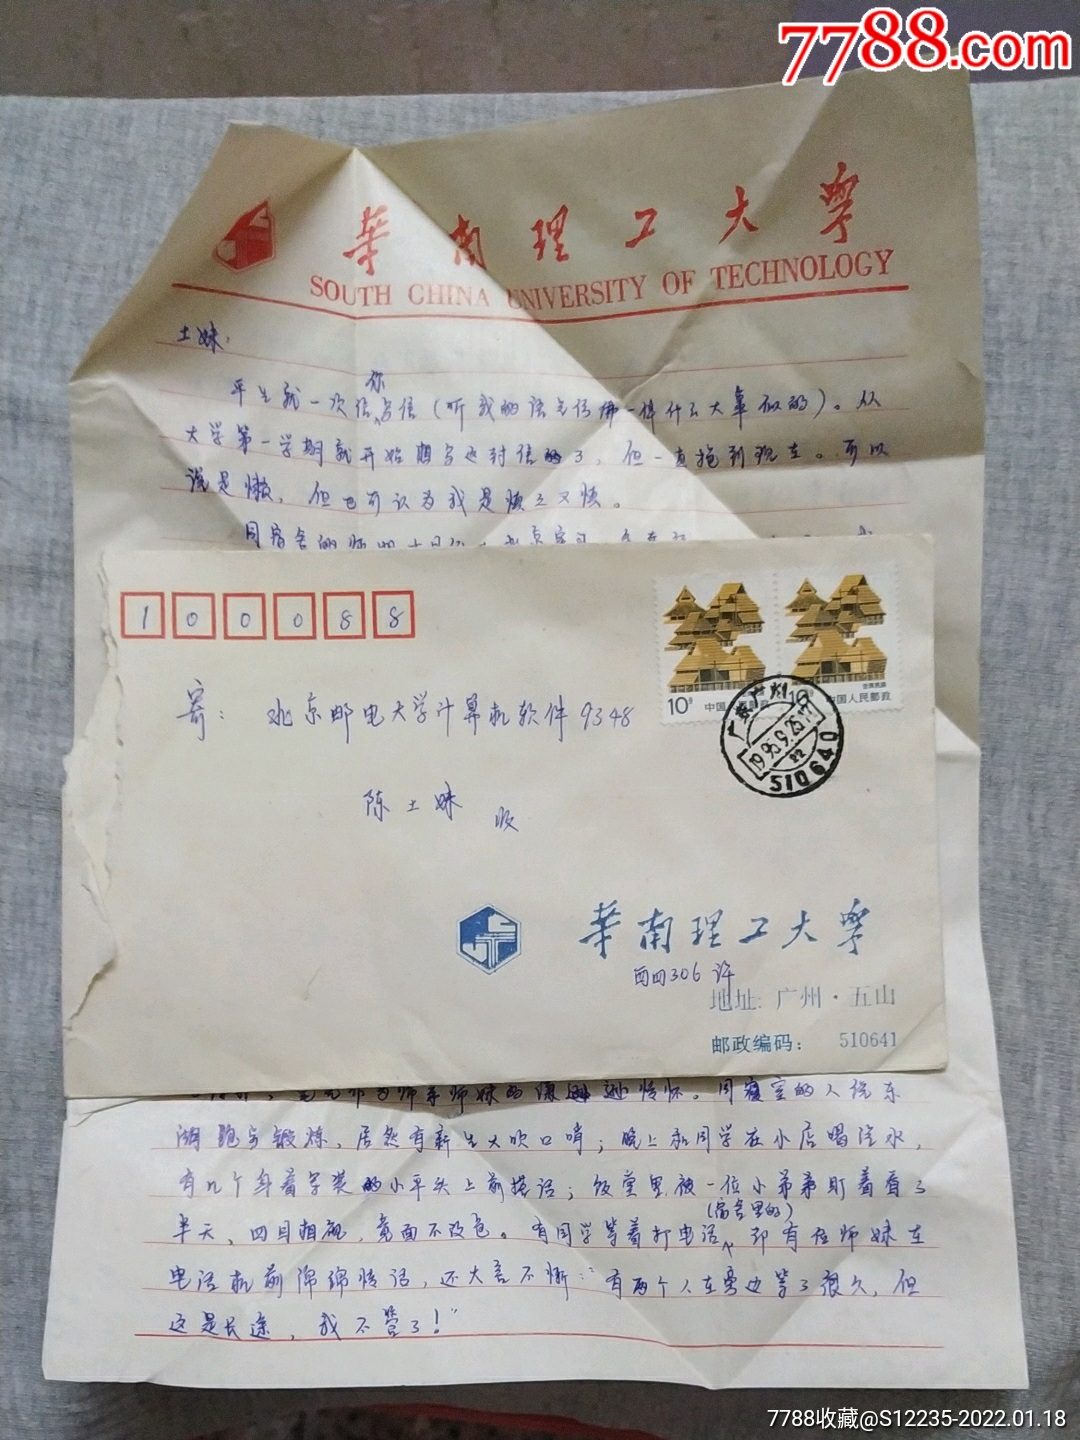 7788.com
華南理工大學
SOUTH CHINA UNIVERSITY OF TECHNOLOGY
土妹:
你
平生就一次给写信(听我的语气仿佛一件什么大事似的)。从
大学第一学期就开始想写这封信的了,但一直拖到现在。可以
说是懒,但也可认为我是慎之又慎。
同宿舍的师
100088
寄:北京邮电大学计算机软件9348
陈土妹 收
10分 中国人民邮政
10分 中国人民邮政
广东广州
1995.9.25.17
510640
華南理工大學
西四306 许
地址:广州·五山
邮政编码: 510641
师妹的 情怀。同寝室的人绕东
湖跑步锻炼,居然有新生大吹口哨;晚上和同学在小店喝汽水,
有几个身着学装的小平头上前搭话;饭堂里被一位小弟弟盯着看了
(宿舍里的)
半天,四目相视,竟面不改色。有同学等着打电话,却有位师妹在
电话机前绵绵情话,还大言不惭:“有两个人在旁边等了很久,但
这是长途,我不管了!”
7788收藏@S12235-2022.01.18